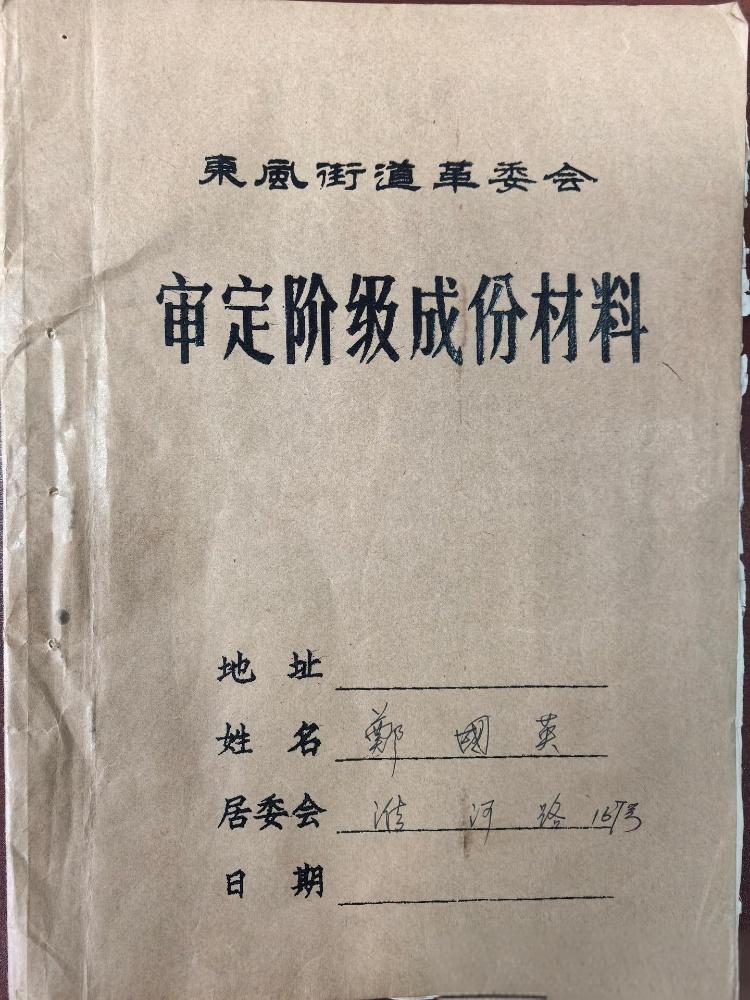 東風街道革委会
审定阶级成份材料
地 址
姓 名 鄭國英
居委会 河路
日 期